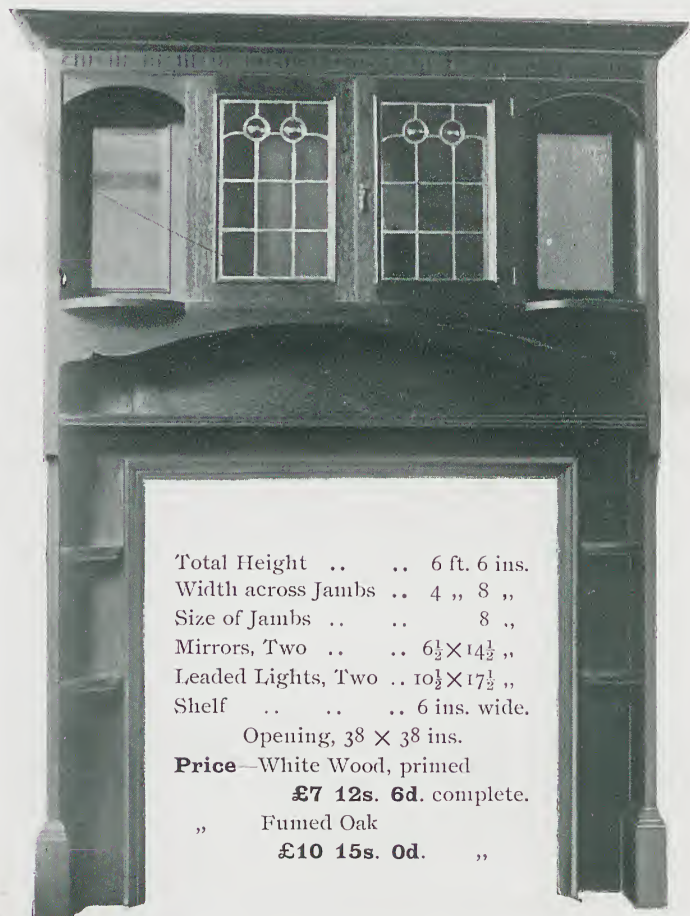 Total Height .. .. 6 ft. 6 ins.
Width across Jambs .. 4 ,, 8 ,,
Size of Jambs .. .. 8 ,,
Mirrors, Two .. .. 6½ × 14½ ,,
Leaded Lights, Two .. 10½ × 17½ ,,
Shelf .. .. .. 6 ins. wide.
Opening, 38 × 38 ins.
Price—White Wood, primed
£7 12s. 6d. complete.
,, Fumed Oak
£10 15s. 0d. ,,